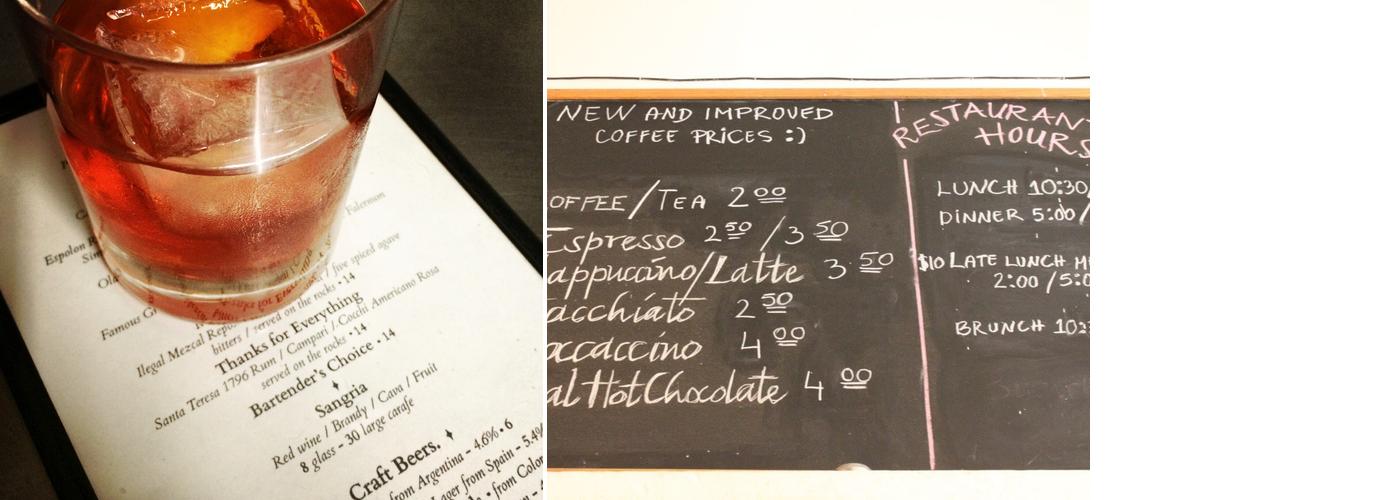 Falernum
Espolon
five spiced agave
Ola
bitters / served on the rocks • 14
Famous
Thanks for Everything
Ilegal Mezcal
Santa Teresa 1796 Rum / Campari / Cocchi Americano Rosa
served on the rocks • 14
Bartender's Choice • 14
Sangria
Red wine / Brandy / Cava / Fruit
8 glass - 30 large carafe
Craft Beers.
from Argentina - 4.6% • 6
ager from Spain - 5.4%
from Colom
NEW AND IMPROVED
COFFEE PRICES :)
OFFEE/TEA 2 00
Espresso 2 50 / 3 50
appuccino/Latte 3 50
acchiato 2 50
occaccino 4 00
al Hot Chocolate 4 00
RESTAURANT
HOURS
LUNCH 10:30/
DINNER 5:00/
$10 LATE LUNCH M
2:00/5:0
BRUNCH 10:3